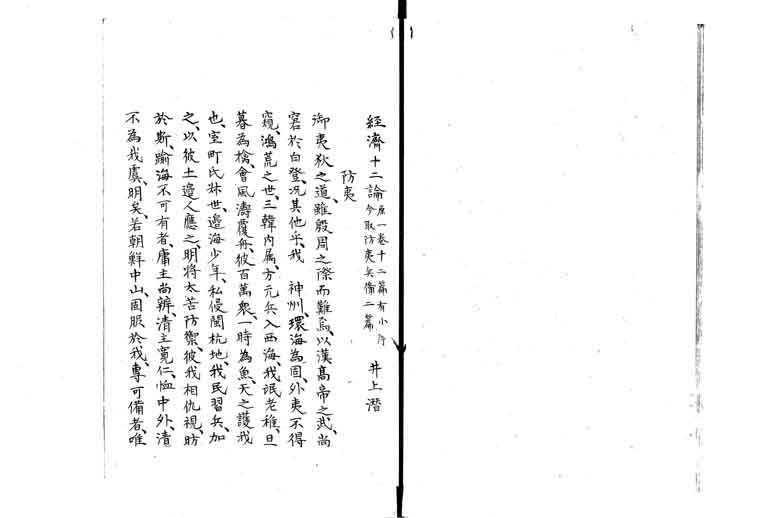 經濟十二論 原一卷十二篇有小序 今取防夷兵備二篇 井上潜
防夷
御夷狄之道、雖殷周之際而難焉、以漢高帝之武、尚
窘於白登、况其他乎、我 神州、環海為固、外夷不得
窺、鴻荒之世、三韓内属、方元兵入西海、我氓老稚、旦
暮為擒、會風濤覆舟、彼百萬衆、一時為魚、天之護我
也、室町氏牀世、邉海少年、私侵閩杭地、我民習兵、加
之、以彼土邉人應之、明將太苦防禦、彼我相仇視、昉
於斯、踰海不可有者、庸主尚辨、清主寛仁、恤中外、清
不為我虞、明矣、若朝鮮中山、固服於我、專可備者、唯